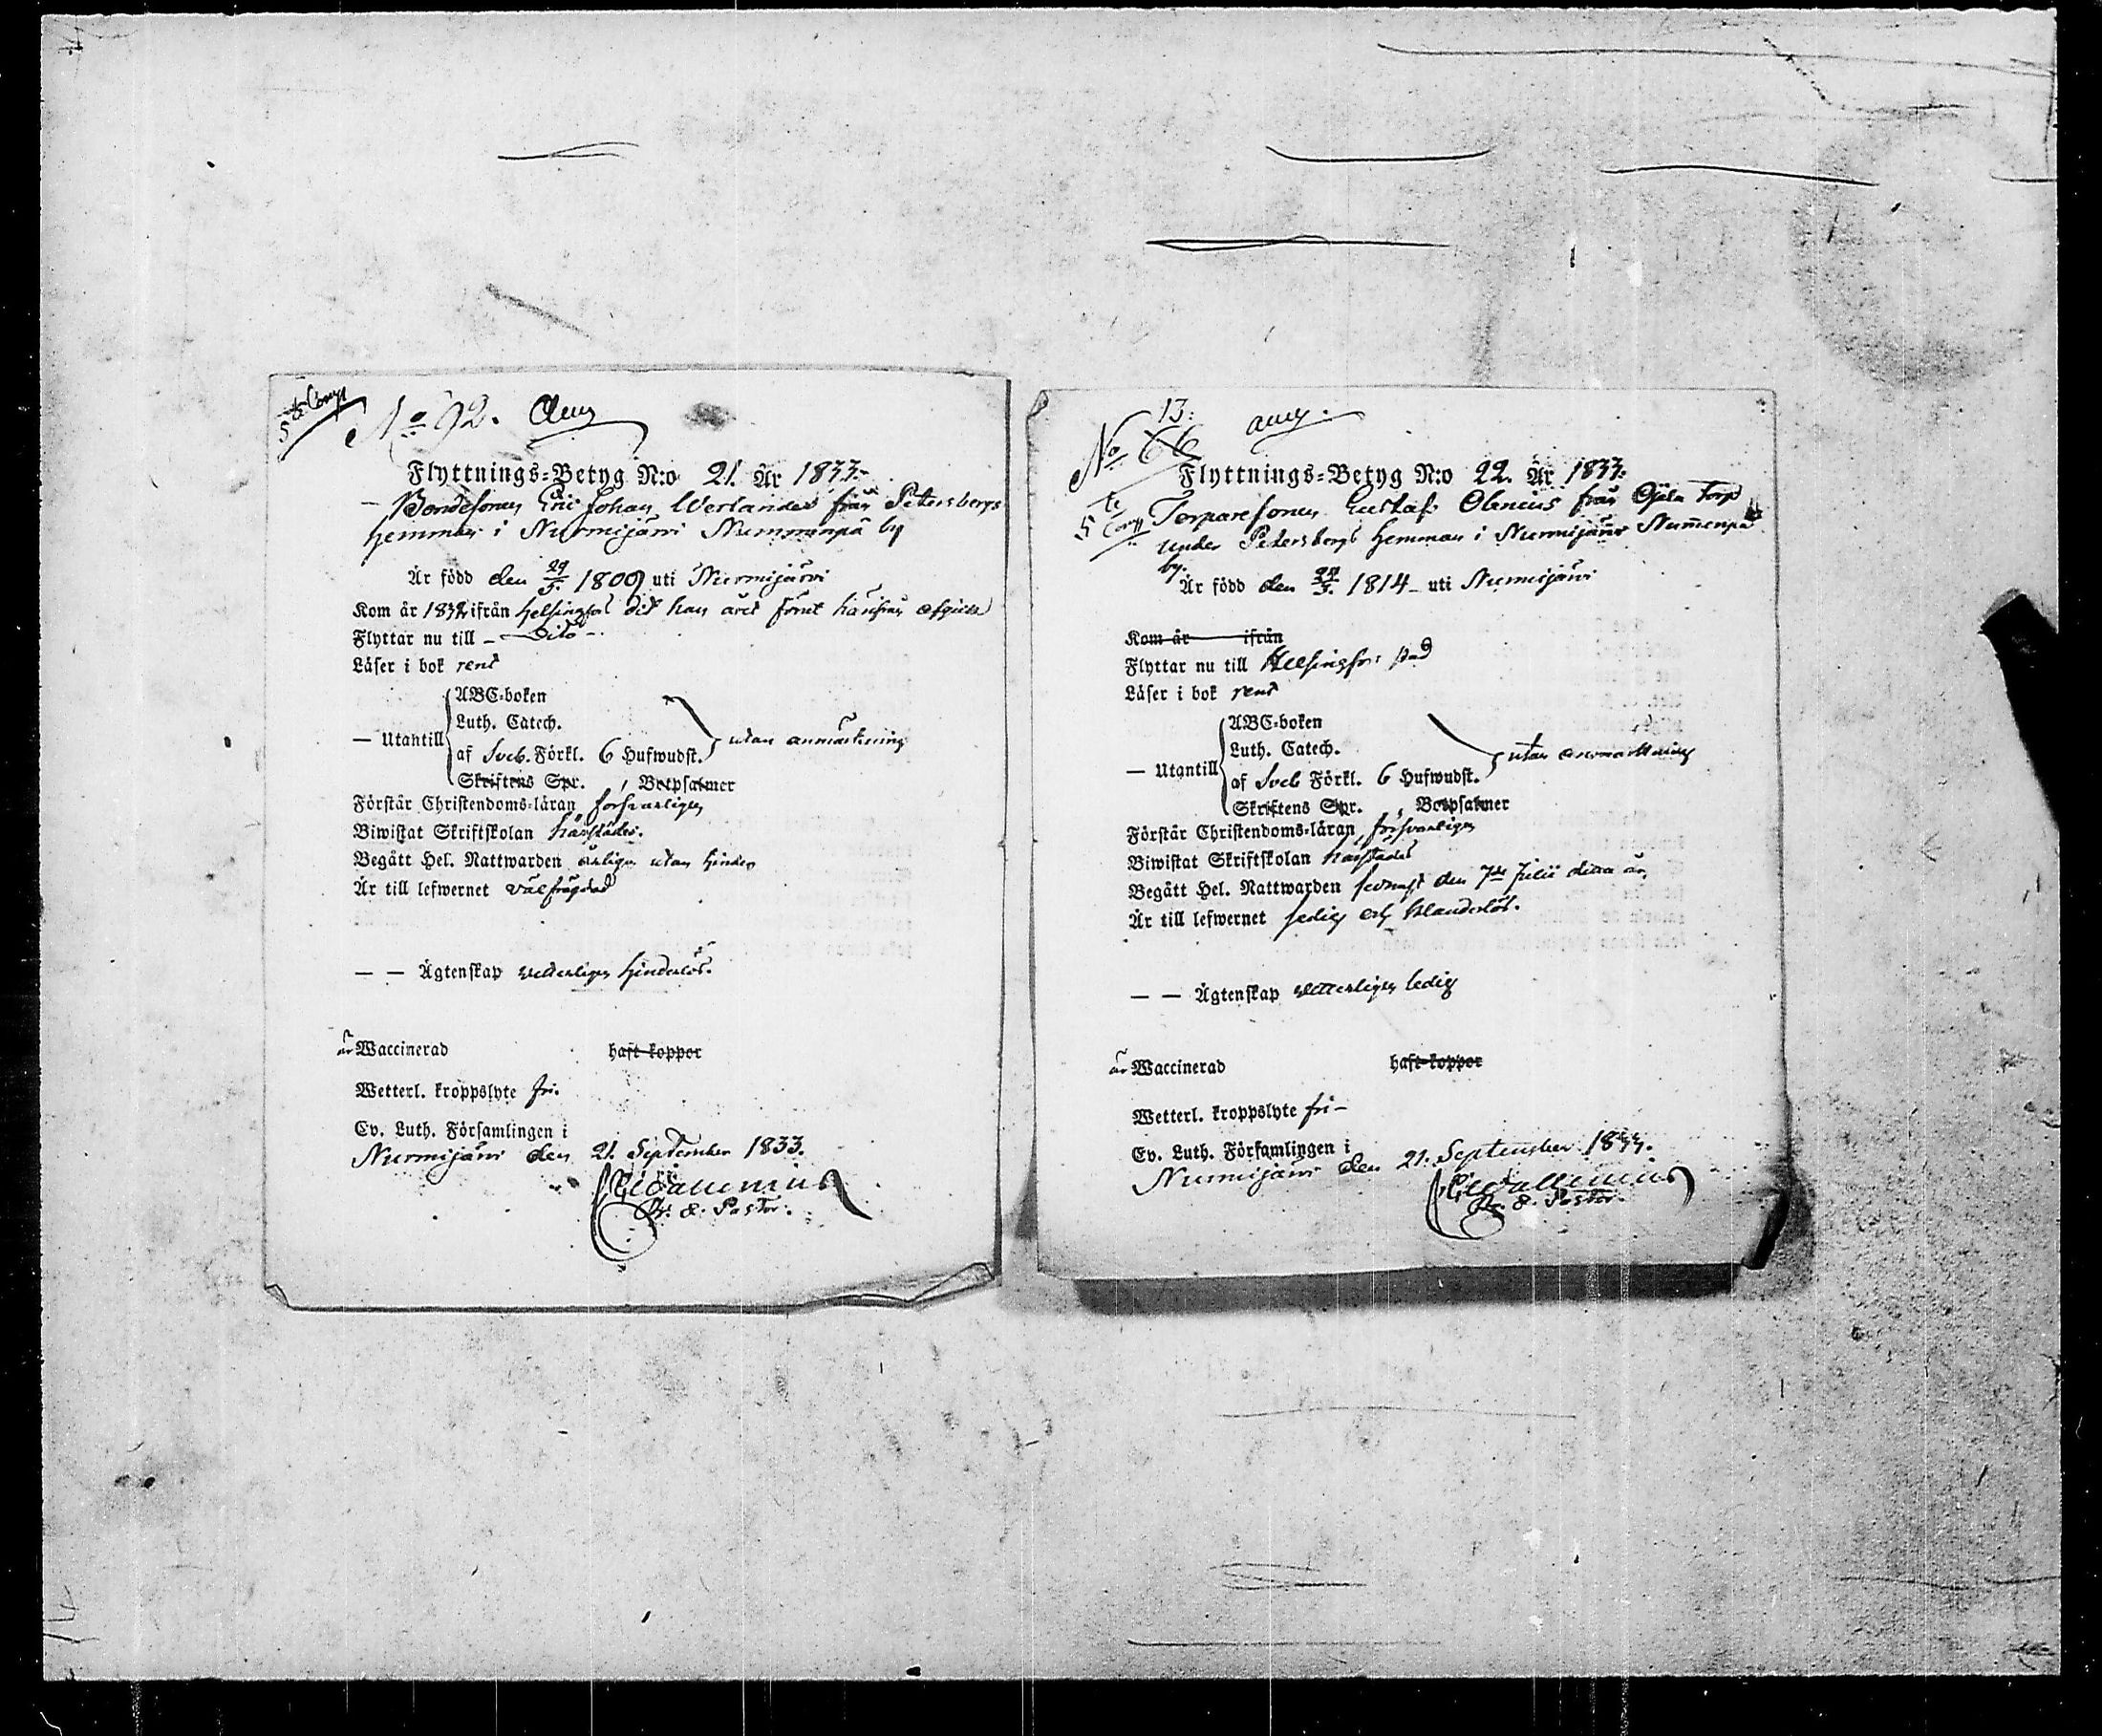 5te Comp
No 92. Aug
Flyttnings-Betyg N:o 21. År 1833.
Bondesonen Eric Johan Werlander från Petersbergs
hemman i Nurmijärvi Nummenpä by
Är född den 29/5. 1809 uti Nurmijärvi
Kom år 1832 ifrån Helsingfors dit han året förut härifrån
Flyttar nu till - Dito -
Läser i bok rent
ABC-boken
Luth. Catech.
— Utantill utan anmärkning
af Sveb. Förkl. 6 Hufwudst.
Skriftens Spr. , Botpsalmer
Förstår Christendoms-läran försvarligen
Biwistat Skriftskolan härstädes.
Begått Hel. Nattwarden årligen utan hinder
Är till lefwernet välfrägdad
— — Ägtenskap vetterligen hinderlös.
är Waccinerad haft koppor
Wetterl. kroppslyte fri.
Ev. Luth. Församlingen i
Nurmijärvi den 21. September 1833.
Pastor.
13:
No 66 aug.
Flyttnings-Betyg N:o 22. År 1833:
5te Comp Torparesonen Gustaf Olenius från Ojala Torp
under Petersbergs hemman i Nurmijärvi Nummenpä
by.
Är född den 1814 - uti Nurmijärvi
Kom år ifrån
Flyttar nu till Helsingfors stad
Läser i bok rent
ABC-boken
Luth. Catech.
— Utantill utan anmärkning
af Sveb Förkl. 6 Hufwudst.
Skriftens Spr. , Botpsalmer
Förstår Christendoms-läran försvarligen
Biwistat Skriftskolan härstädes
Begått Hel. Nattwarden sednast den 7de Julii detta år.
Är till lefwernet sedig och klanderlös.
— — Ägtenskap vetterligen ledig
är Waccinerad haft koppor
Wetterl. kroppslyte fri -
Ev. Luth. Församlingen i
Nurmijärvi den 21. September 1833.
Pastor.